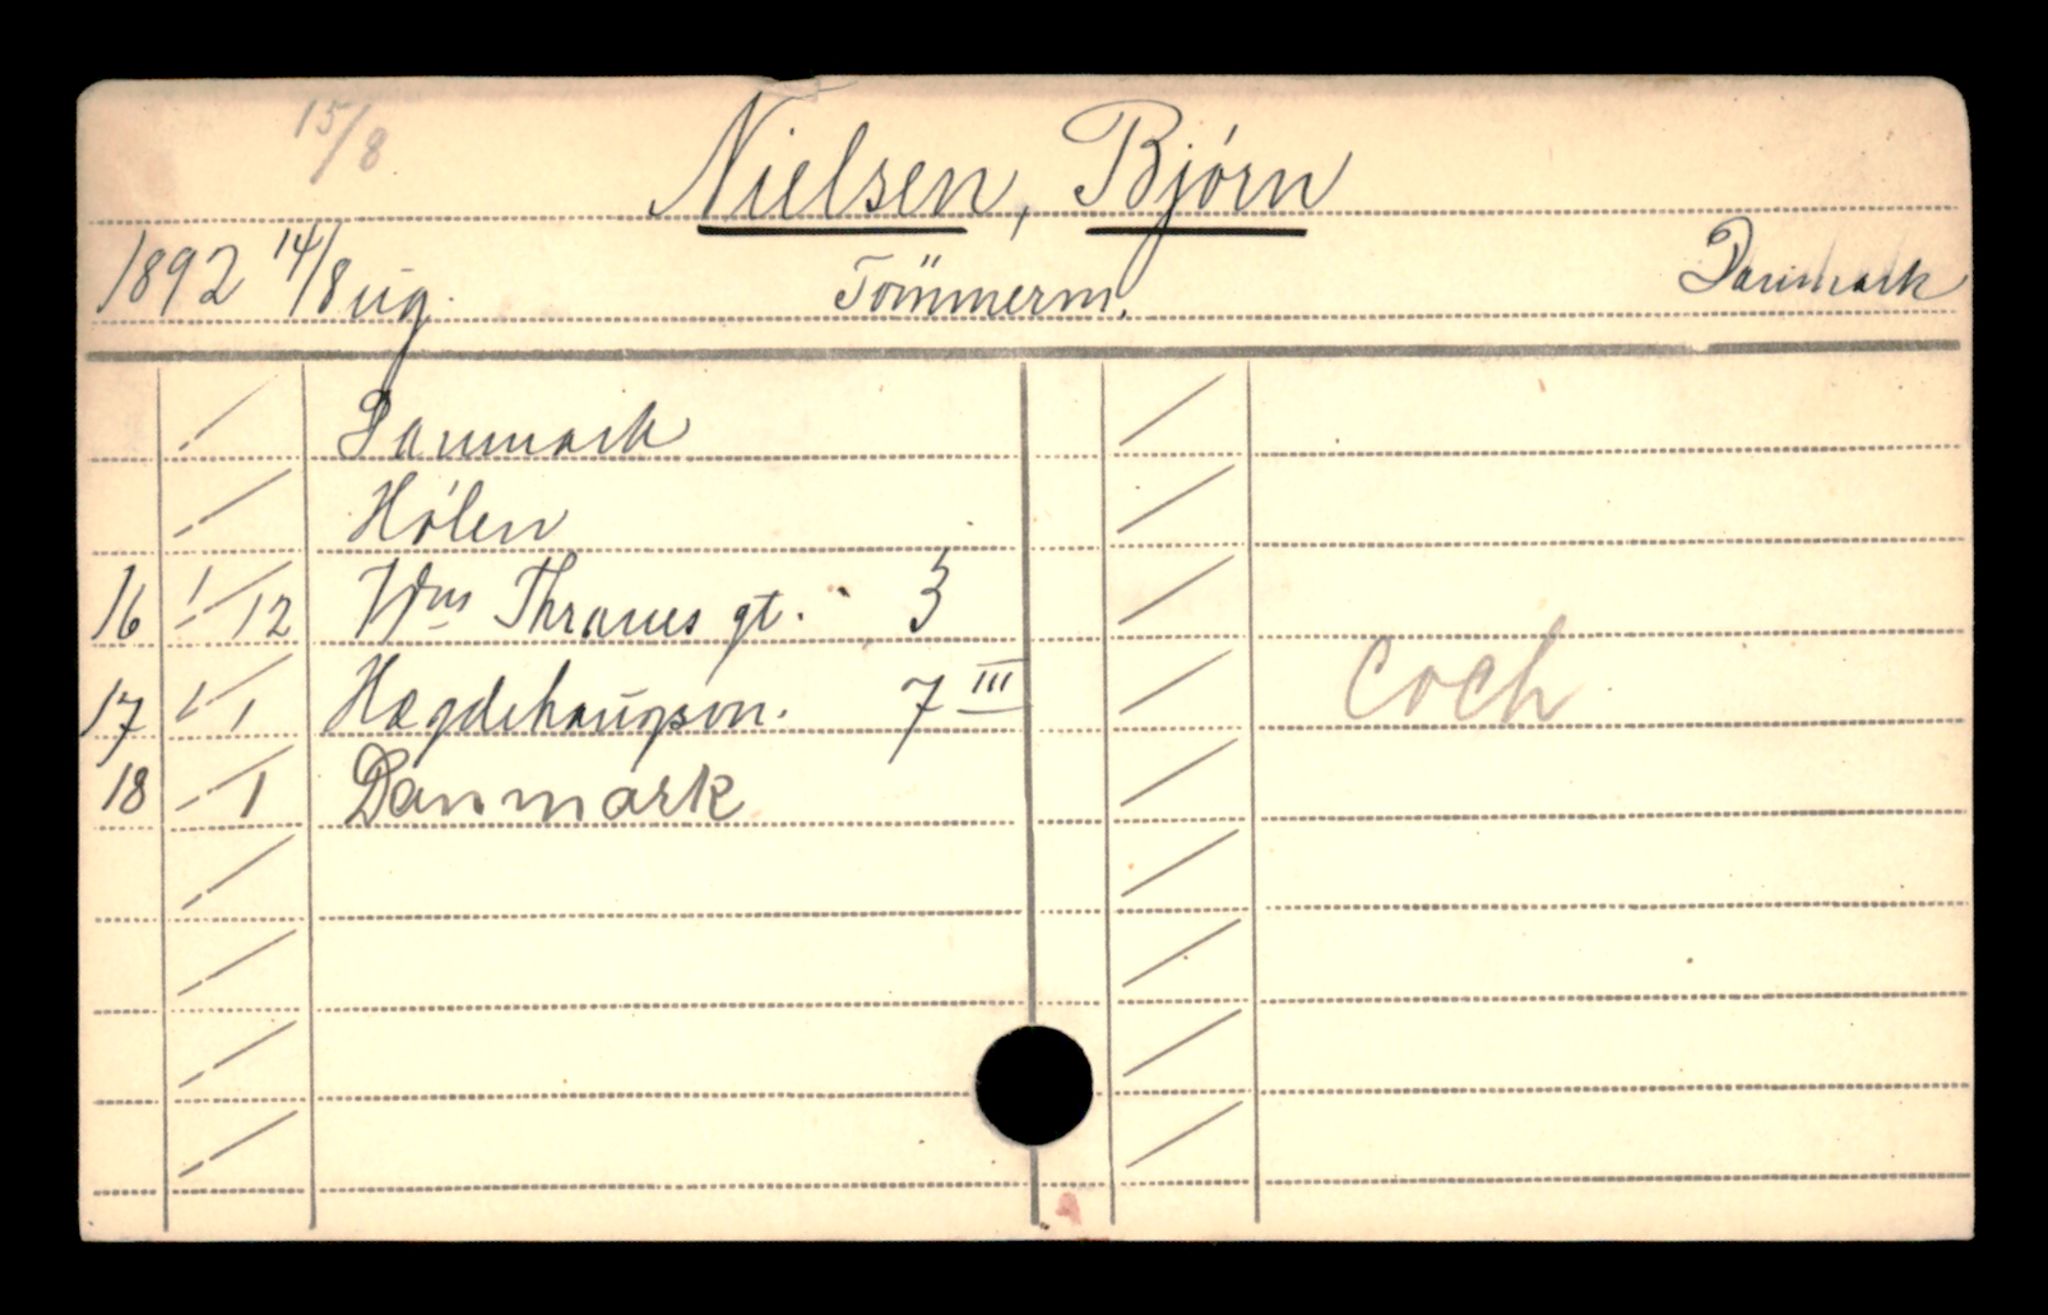 15/8
Nielsen, Bjørn
1892 14/8 ug. Tømmerm. Danmark
Danmark
Hølen
16 1/12 Wm Thranes gt. 3
17 1/1 Hægdehaugsvn. 7 III
coch
18 /1 Danmark